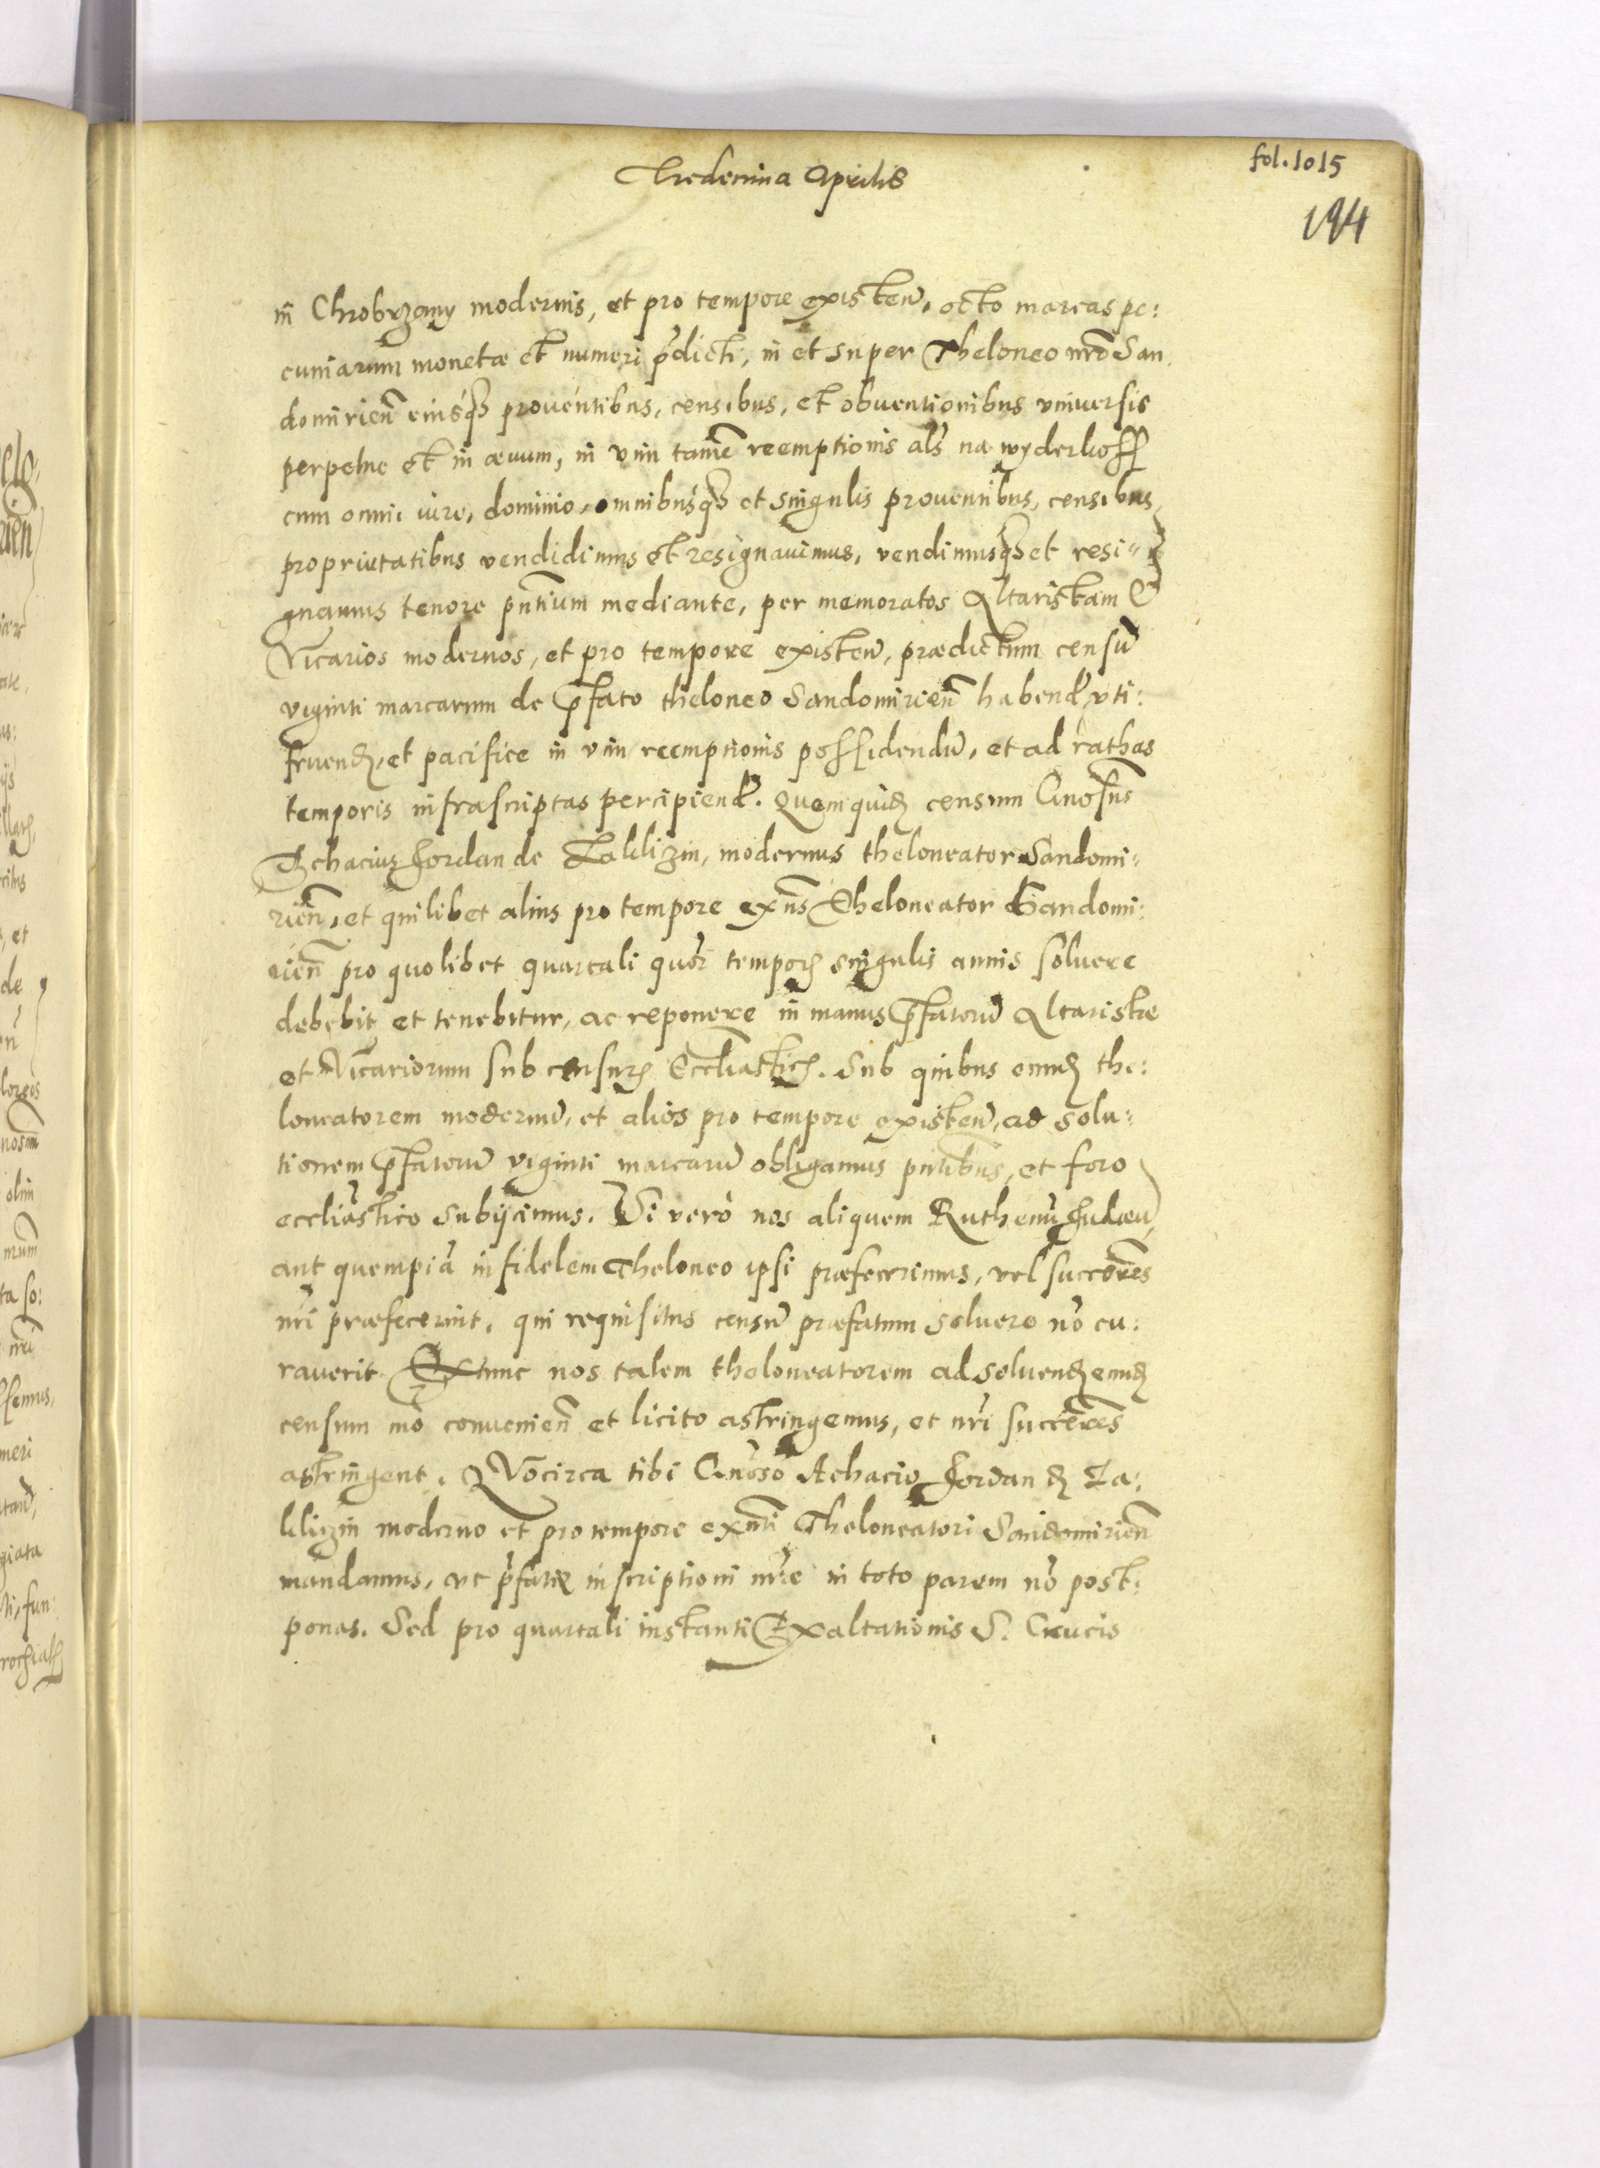 fol. 1015
Tredecima Aprilis
194
in Chrobrzany modernis, et pro tempore existen̄, octo marcas pe:
cuniarum monetæ et numeri p̄dicti, in et super Theloneo nr̄o San
domirien̄ eiusq₃ proventibus, censibus, et obventionibus vniversis
perpetue et in ævum, in vim tamē reemptionis als̄ na wyderkoff
cum omni iure, dominio, omnibusq₃ et singulis proventibus, censibus,
proprietatibus vendidimus et resignavimus, vendimusq₃ et resi„
gnamus tenore pn̄tium mediante, per memoratos Altaristam &
Vicarios modernos, et pro tempore existen̄, prædictum censū
viginti marcarum de p̄fato theloneo Sandomirien̄ habend̄ vti:
fruend̄, et pacifice in vim reemptionis possidendū, et ad rathas
temporis infrascriptas percipiend̄. Quem quid̄ censum Gnosūs
Achacius Jordan de Zakliczin, modernus theloneator Sandomi„
rien̄, et quilibet alius pro tempore exn̄s Theloneator Sandomi:
rien̄ pro quolibet quartali quor̄ tempor̄ singulis annis solvere
debebit et tenebitur, ac reponere in manus p̄fatorū Altaristæ
et Vicariorum sub censur̄ Eccl̄iastic̄. Sub quibus eund̄ the:
loneatorem modernū, et alios pro tempore existen̄, ad solu:
tionem p̄fatorū viginti marcarū obligamus pn̄tibus, et foro
eccl̄iastico subijcimus. Si verò nos aliquem Ruthenū Judæū,
aut quempiā infidelem Theloneo ipsi præfecerimus, vel succores
nr̄i præfecerint, qui requisitus censū præfatum solvere nō cu:
raverit Extunc nos talem theloneatorem ad solvend̄ eund̄
censum mō convenien̄ et licito astringemus, et nr̄i succeres
astringent. QVocirca tibi Gnōso Achacio Jordan d̄ Za:
kliczin moderno et pro tempore exn̄ti Theloneatori Sandomirien̄
mandamus, vt p̄fatæ inscriptioni nr̄e in toto parem nō post:
ponas. Sed pro quartali instanti Exaltationis S. Crucis